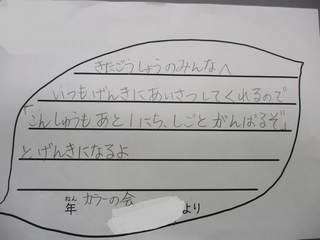 きたごうしょうのみんなへ
いつもげんきにあいさつしてくれるので
「こんしゅうもあと1にち、しごとがんばるぞ」
と、げんきになるよ
ねん
年 カラーの会 より